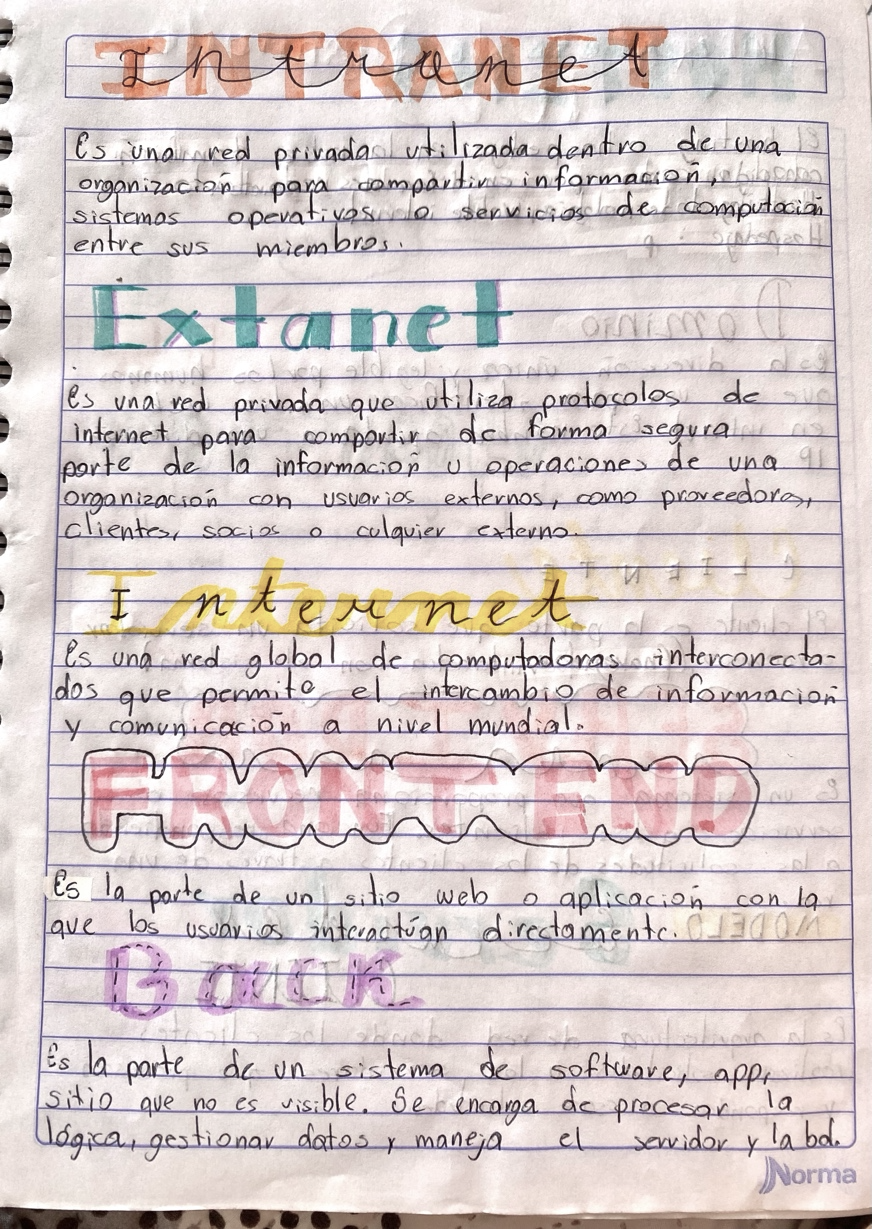 Intranet
Es una red privada utilizada dentro de una
organización para compartir información,
sistemas operativos o servicios de computación
entre sus miembros.
Extanet
Es una red privada que utiliza protocolos de
internet para compartir de forma segura
parte de la información u operaciones de una
organización con usuarios externos, como proveedores,
clientes, socios o culquier externo.
Internet
Es una red global de computadoras interconecta-
dos que permite el intercambio de información
y comunicación a nivel mundial.
FRONT END
Es la parte de un sitio web o aplicación con la
que los usuarios interactúan directamente.
Back
Es la parte de un sistema de software, app,
sitio que no es visible. Se encarga de procesar la
lógica, gestionar datos y maneja el servidor y la bd.
Norma